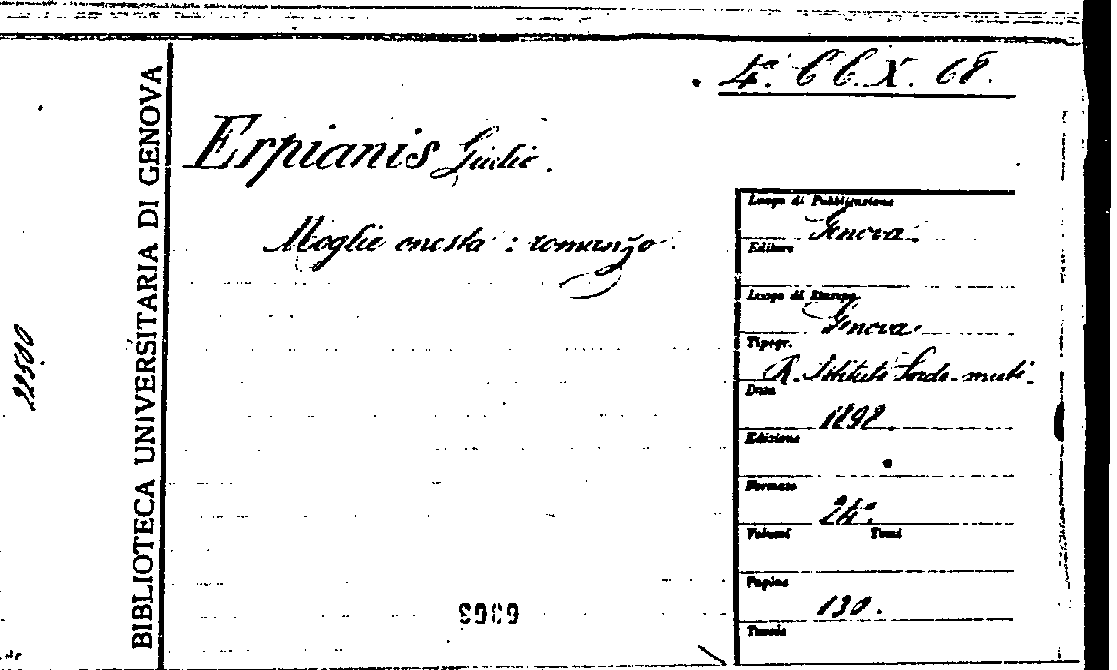 4.ª CC. X. 68.
BIBLIOTECA UNIVERSITARIA DI GENOVA
Erpianis Giulio.
Moglie onesta : romanzo.
Luogo di Pubblicazione
Genova.
Editore
Luogo di Stampa
Genova.
Tipogr.
R. Istituto Sordo-muti.
Data
1898.
Edizione
Formato
24º.
Volumi Tomi
Pagine
130.
Tavole